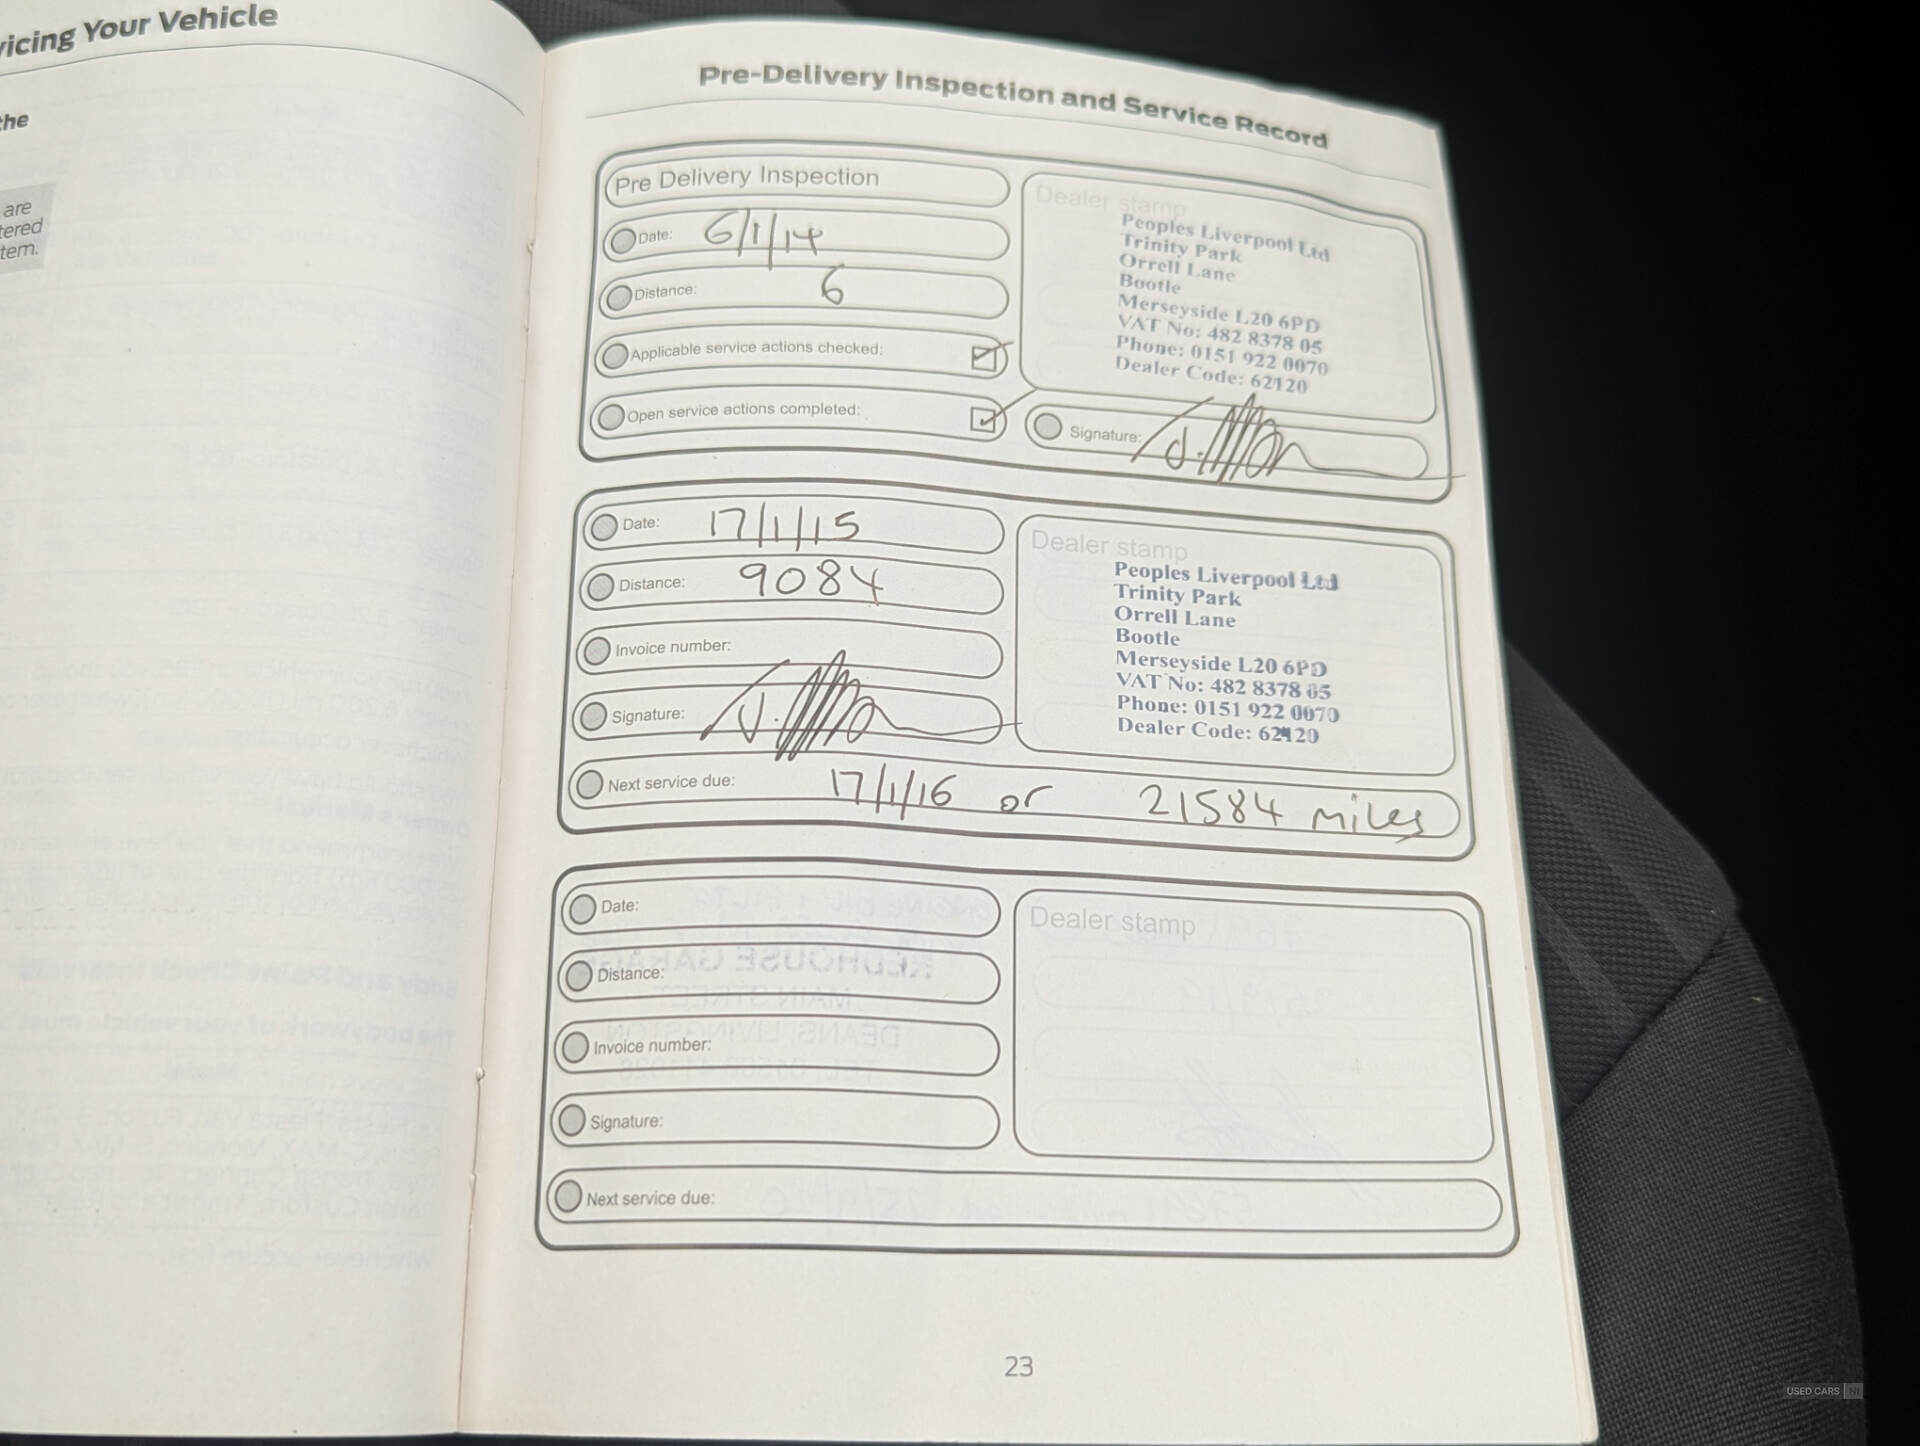 vicing Your Vehicle
the
are
tered
tem.
Pre-Delivery Inspection and Service Record
Pre Delivery Inspection
Date: 6/1/14
Distance: 6
Applicable service actions checked:
Open service actions completed:
Dealer stamp
Peoples Liverpool Ltd
Trinity Park
Orrell Lane
Bootle
Merseyside L20 6PD
VAT No: 482 8378 05
Phone: 0151 922 0070
Dealer Code: 62120
Signature:
Date: 17/1/15
Distance: 9084
Invoice number:
Signature:
Next service due: 17/1/16 or 21584 miles
Dealer stamp
Peoples Liverpool Ltd
Trinity Park
Orrell Lane
Bootle
Merseyside L20 6PD
VAT No: 482 8378 05
Phone: 0151 922 0070
Dealer Code: 62120
Date:
Distance:
Invoice number:
Signature:
Next service due:
Dealer stamp
23
USED CARS NI